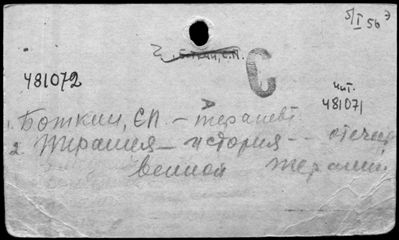 5/I 56 э
2. Боткин, С.П.
С
481072
чит.
481071
1. Боткин, СП. - терапевт
2. Терапия - история - отечест
венной терапии